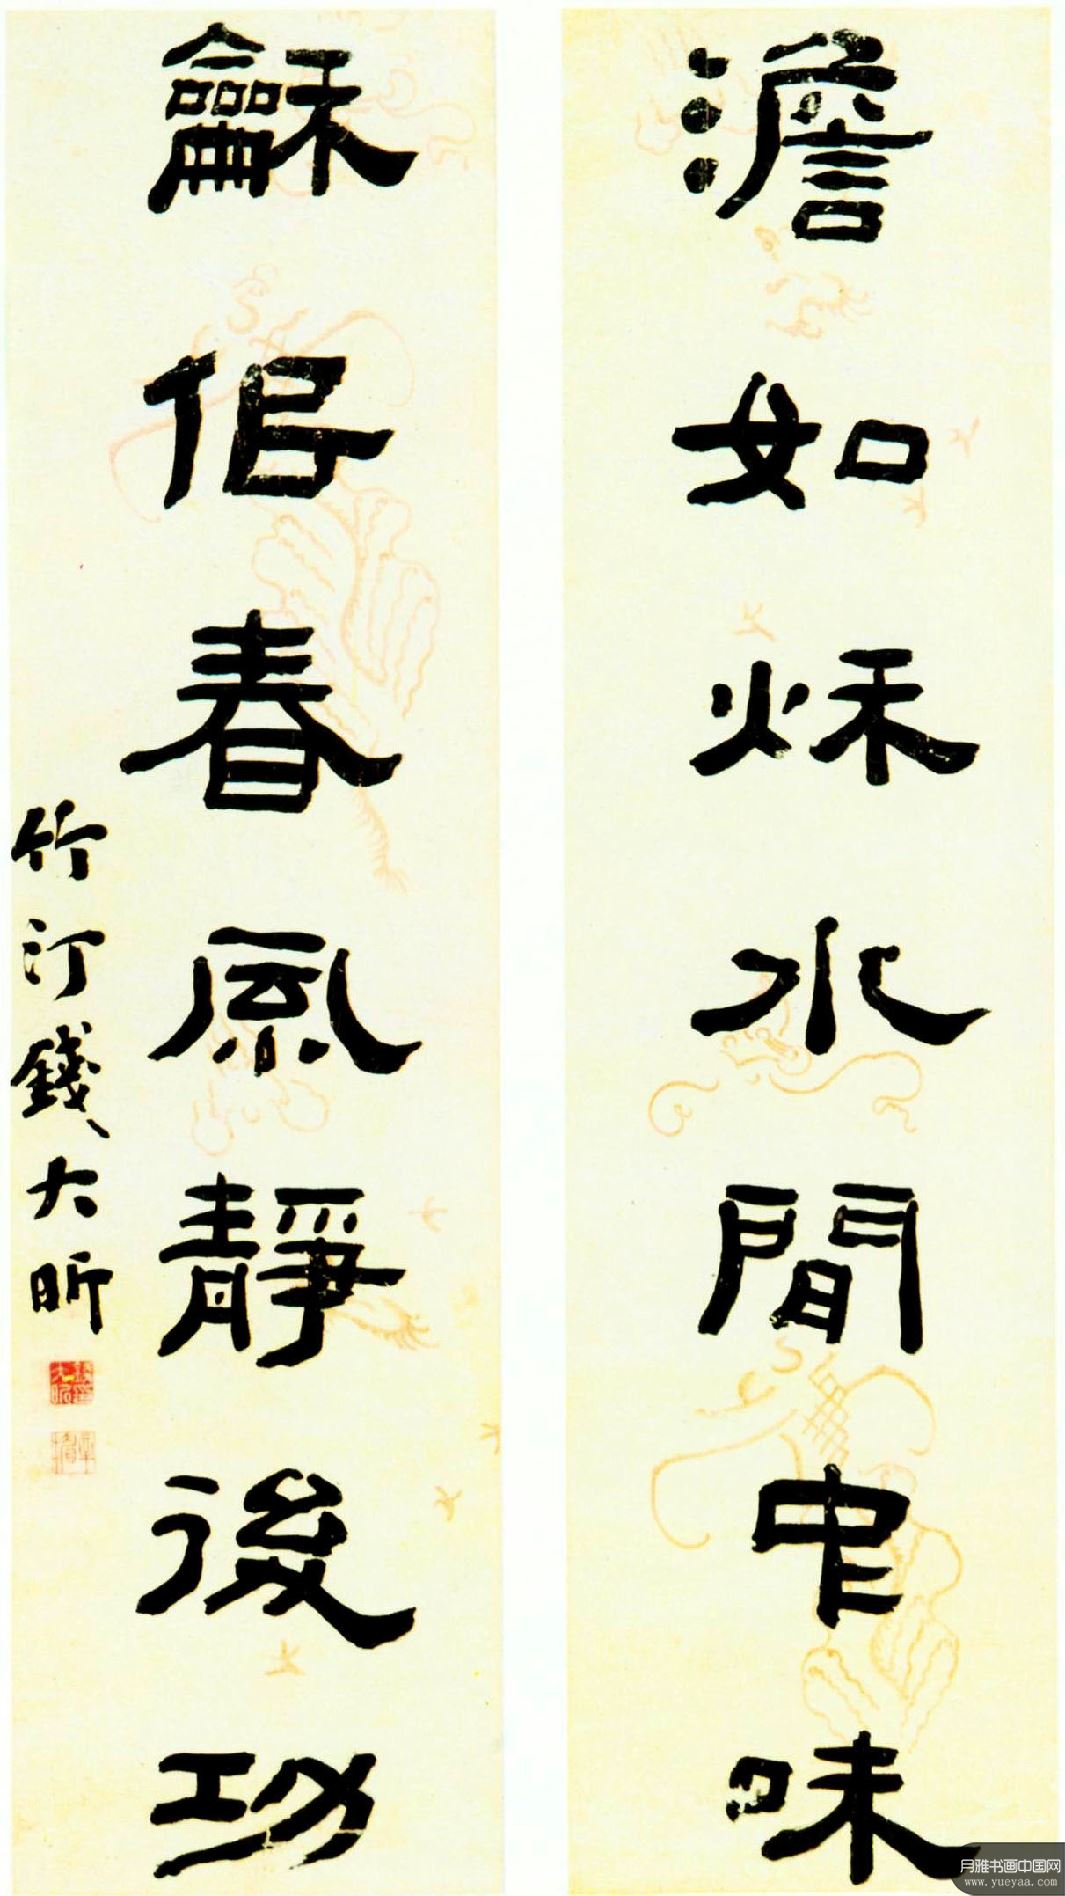 澹如秌水閒中味
龢佀春風靜後功
竹汀錢大昕
月雅书画中国网
www.yueyaa.com